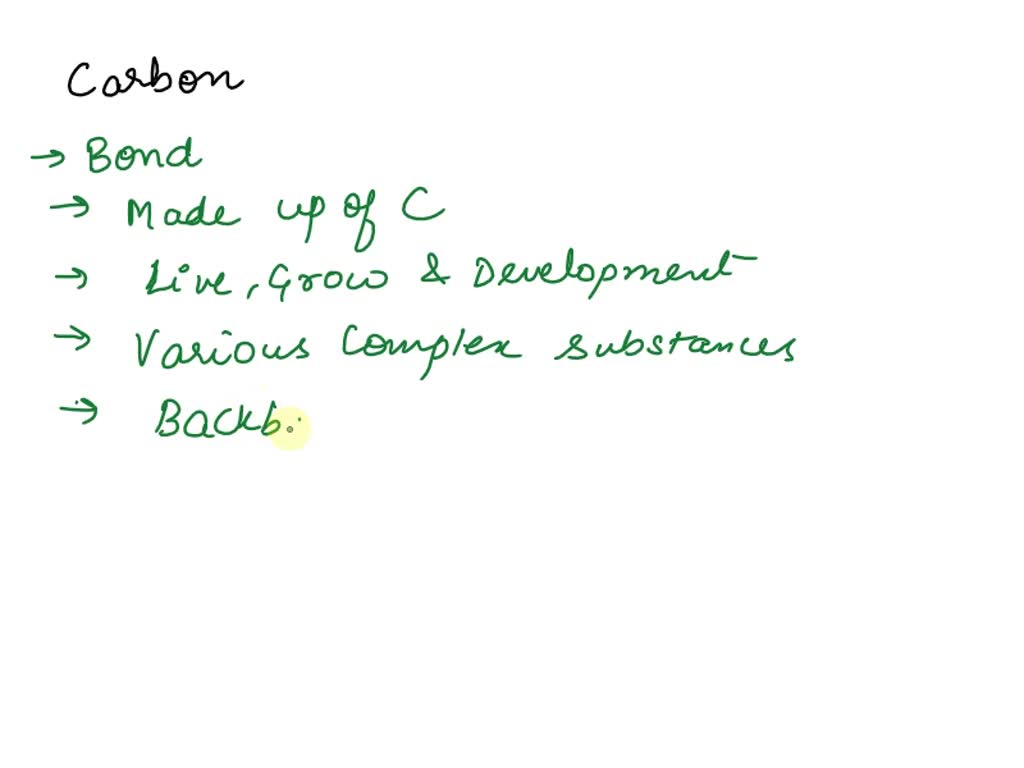 Carbon
→ Bond
→ Made up of C
→ Live, Grow & Development
→ Various Complex substances
→ Backb